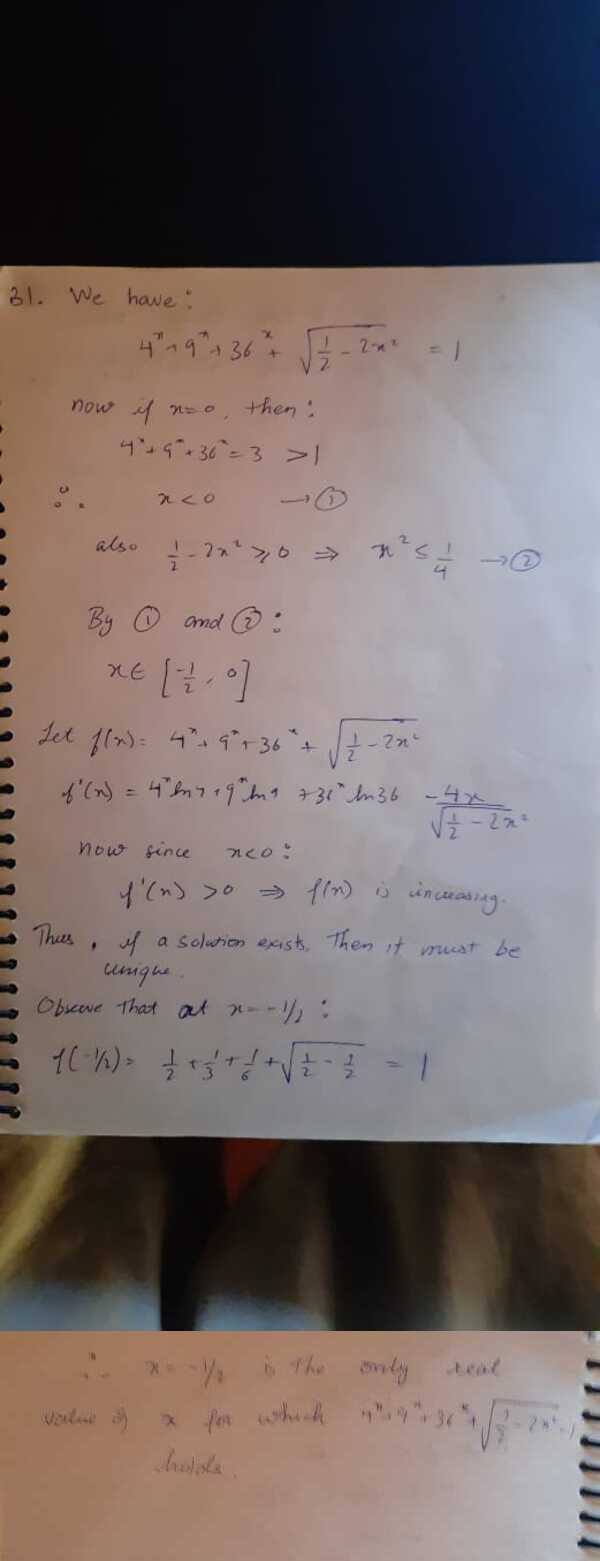 31. We have:
4^x + 9^x + 36^x + √(1/2 - 2x²) = 1
now if x=0, then:
4^x + 9^x + 36^x = 3 > 1
∴ x < 0 → ①
also 1/2 - 2x² ≥ 0 ⇒ x² ≤ 1/4 → ②
By ① and ②:
x ∈ [-1/2, 0]
Let f(x) = 4^x + 9^x + 36^x + √(1/2 - 2x²)
f'(x) = 4^x ln 4 + 9^x ln 9 + 36^x ln 36 -4x/√(1/2 - 2x²)
now since x<0:
f'(x) > 0 ⇒ f(x) is increasing.
Thus, if a solution exists, Then it must be
unique.
Observe that at x = -1/2:
f(-1/2) = 1/2 + 1/3 + 1/6 + √(1/2 - 1/2) = 1
∴ x = -1/2 is the only real
value of x for which 4^x + 9^x + 36^x + √(1/2 - 2x²) = 1
holds.